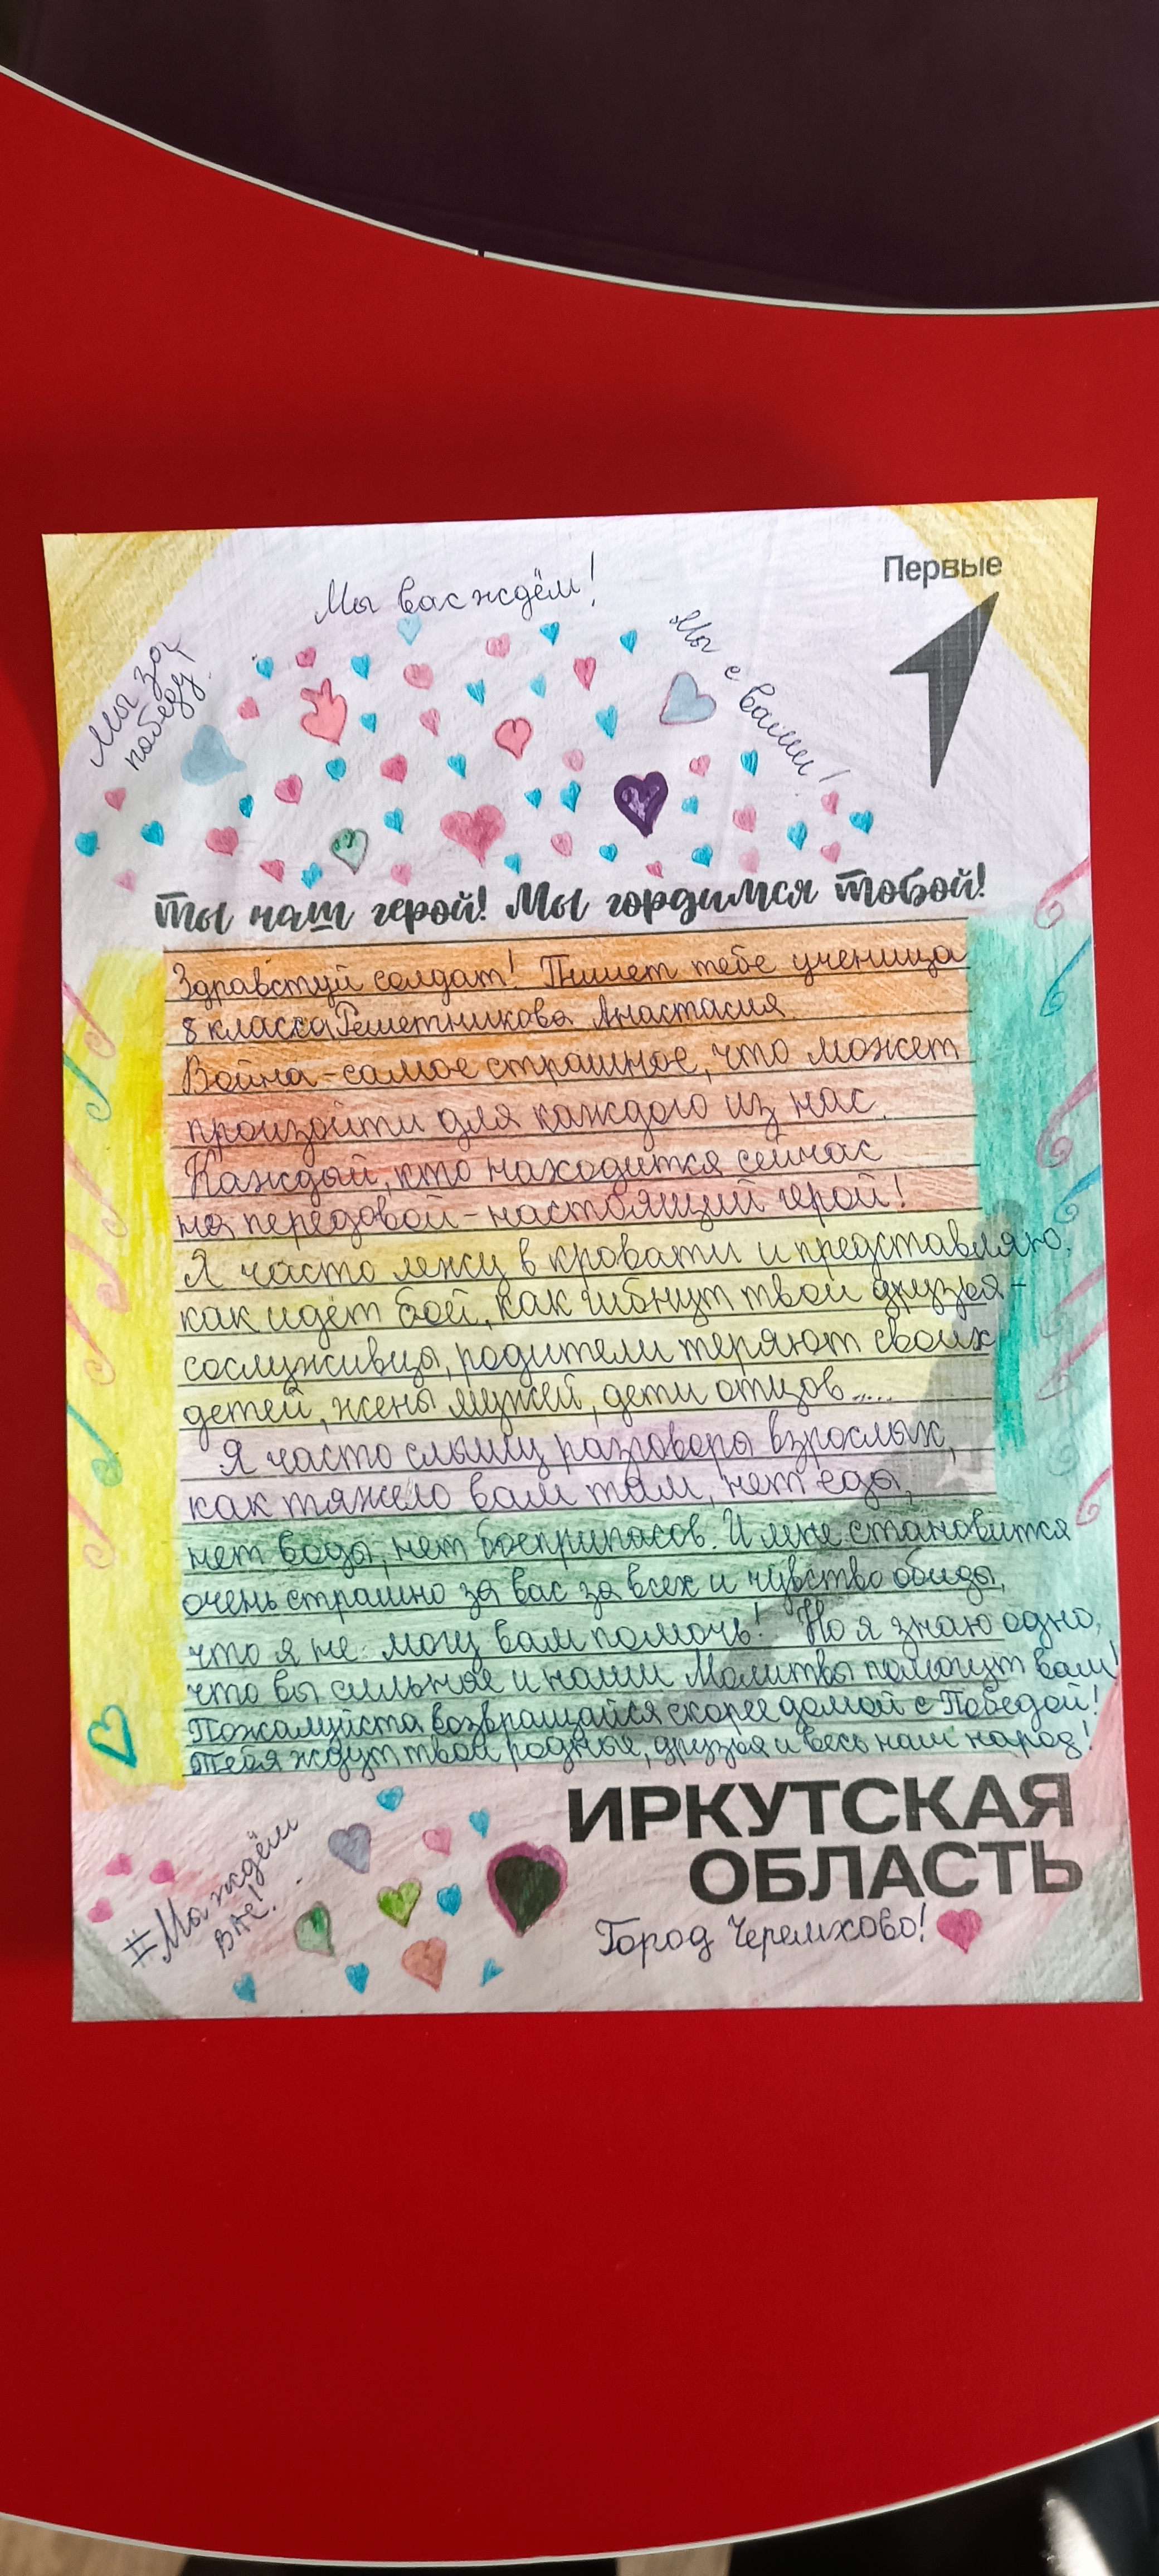 Первые
Мы вас ждём!
Мы за
победу!
Мы с вами!
Ты наш герой! Мы гордимся тобой!
Здравстуй солдат! Пишет тебе ученица
8 класса Решетникова Анастасия
Война - самое страшное, что может
произойти для каждого из нас.
Каждый, кто находится сейчас
на передовой - настоящий герой!
Я часто лежу в кровати и представляю,
как идёт бой, как гибнут твои друзья -
сослуживцы, родители теряют своих
детей, жены мужей, дети отцов.....
Я часто слышу разговоры взрослых,
как тяжело вам там, нет еды,
нет воды, нет боеприпасов. И мне становится
очень страшно за вас за всех и чувство обиды,
что я не могу вам помочь! Но я знаю одно,
что вы сильные и наши Молитвы помогут вам!
Пожалуйста возвращайся скорее домой с Победой!
Тебя ждут твои родные, друзья и весь наш народ!
ИРКУТСКАЯ
ОБЛАСТЬ
Город Черемхово!
#Мы ждём
вас!